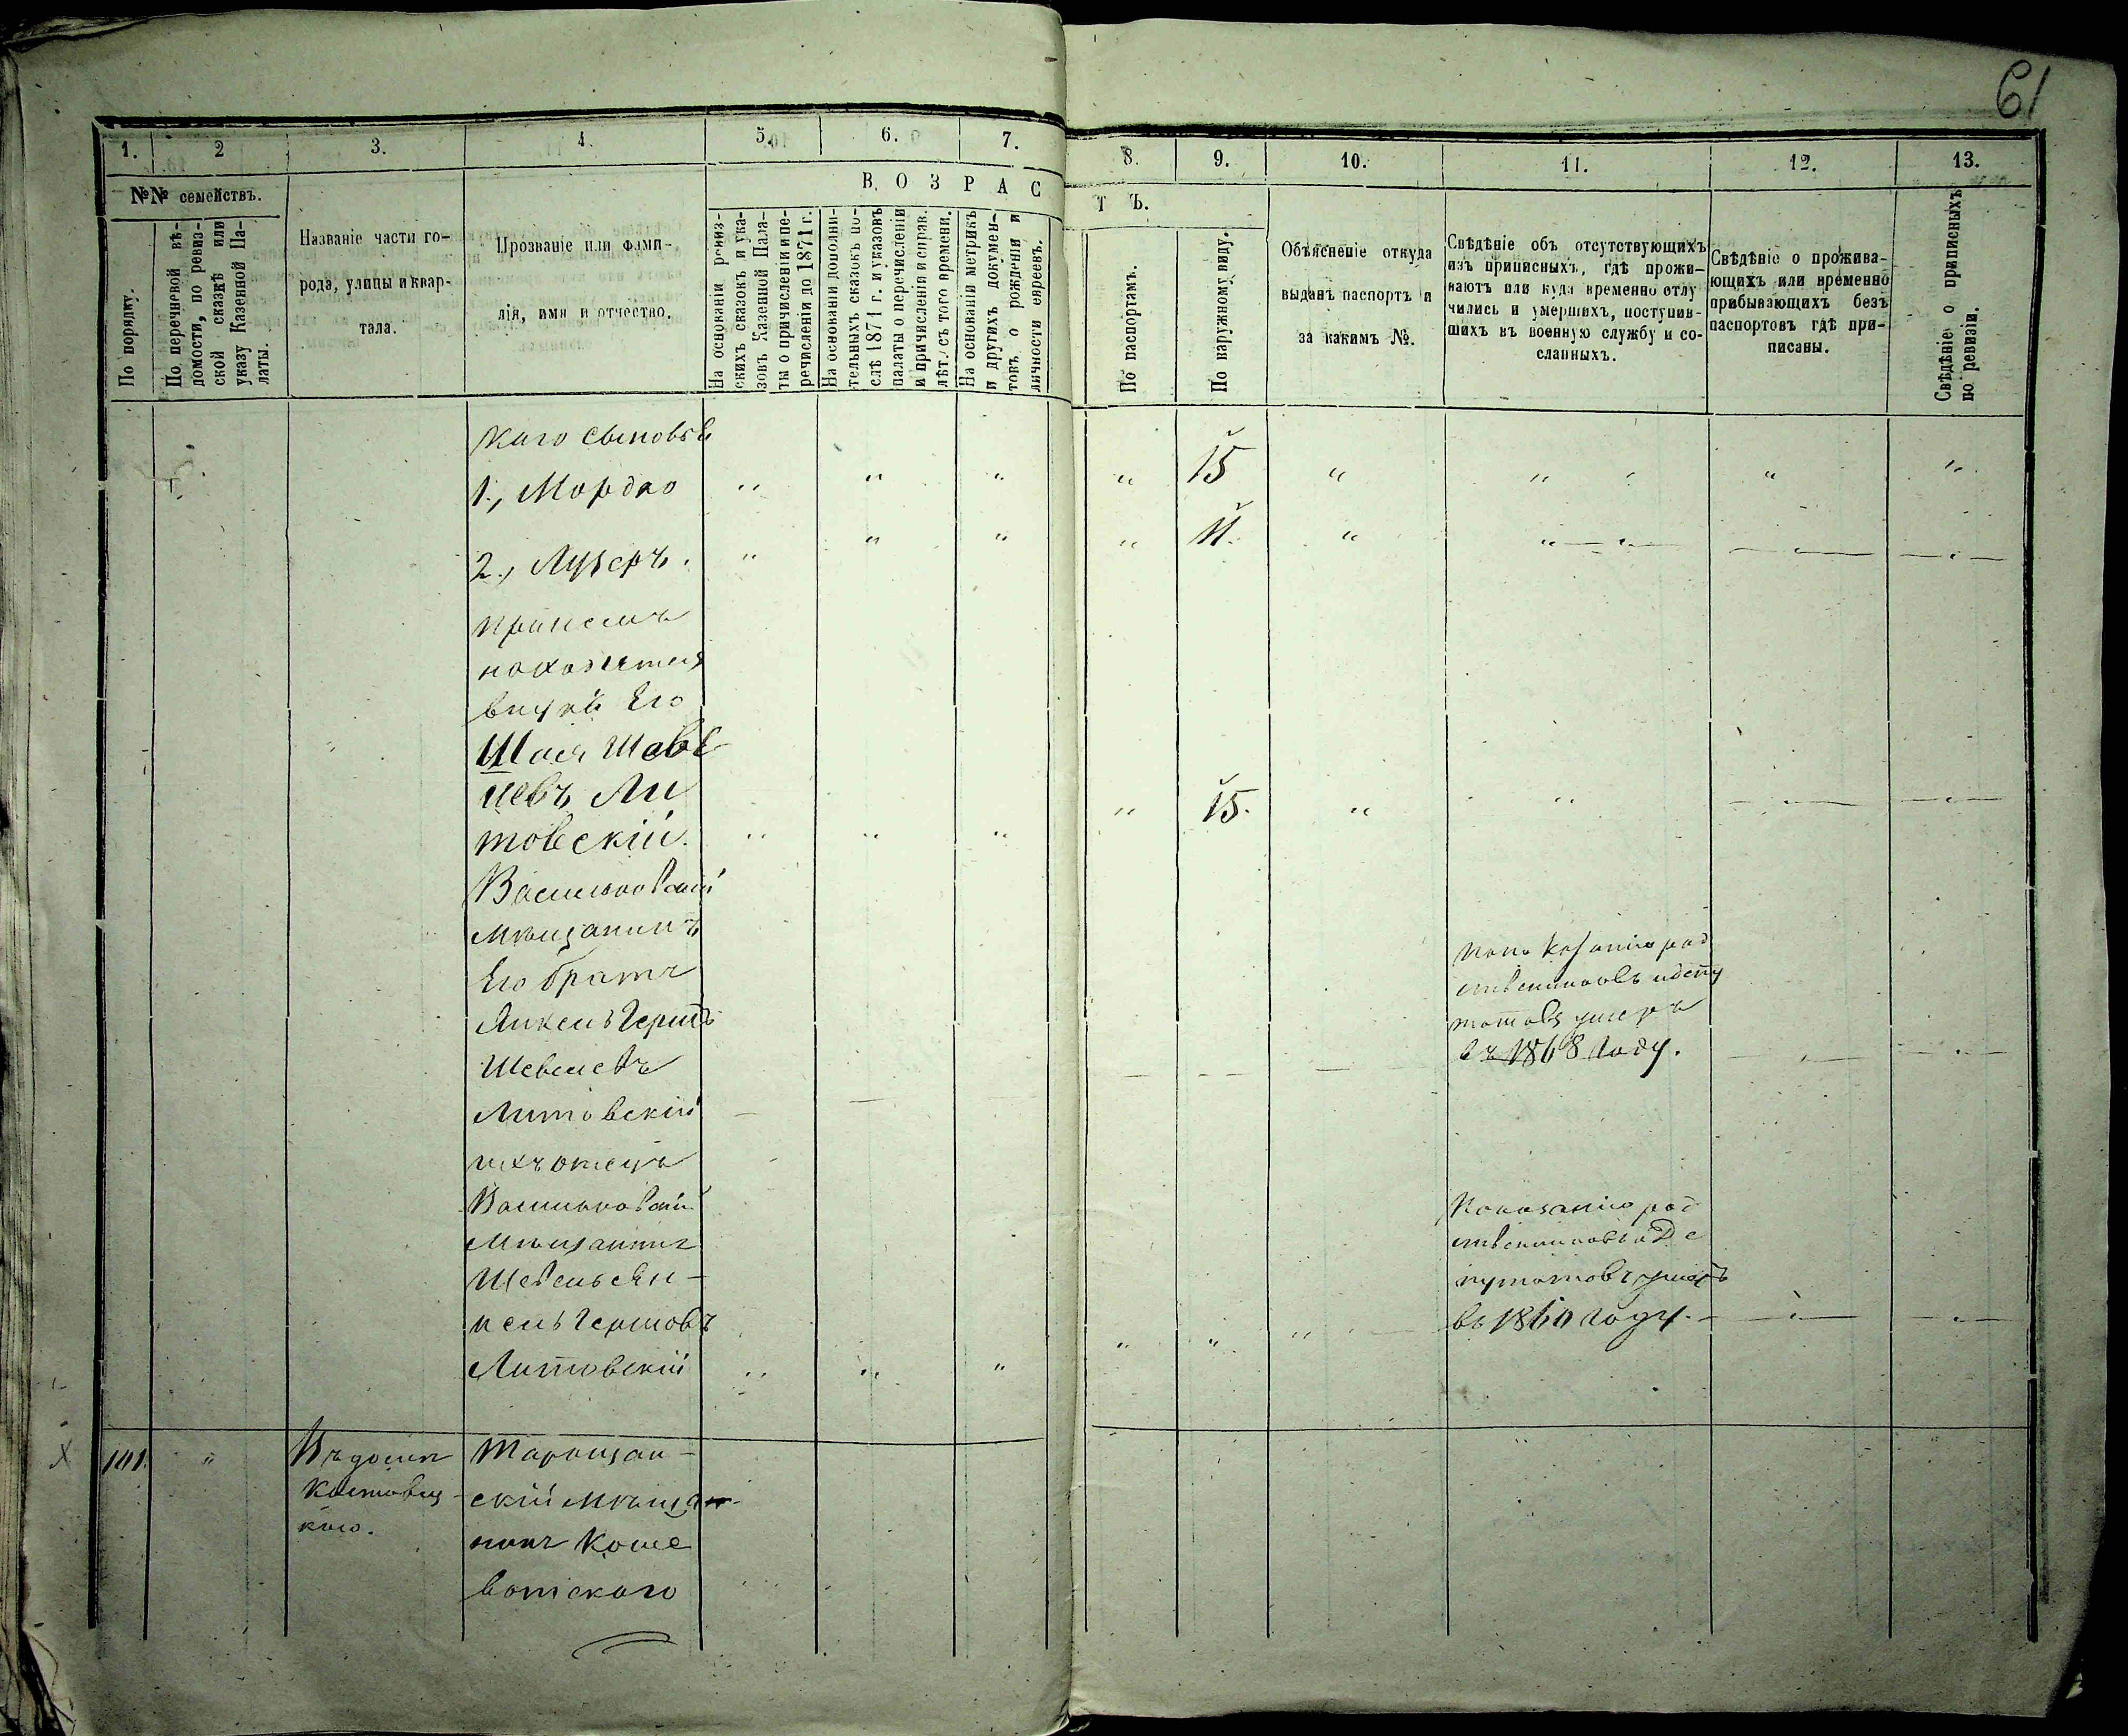 61
1. 2 3. 4. 5. 6. 7. 8. 9. 10. 11. 12. 13.
№№ семействъ.
В О З Р А С Т Ъ.
По порядку.
По перечневой вѣ-
домости, по ревиз-
ской сказкѣ или
указу Казенной Па-
латы.
Названіе части го-
рода, улицы и квар-
тала.
Прозваніе или фами-
лія, имя и отчество.
На основаніи ревиз-
скихъ сказокъ и ука-
зовъ Казенной Пала-
ты о причисленіи и пе-
речисленіи до 1871 г.
На основаніи дополни-
тельныхъ сказокъ по-
слѣ 1871 г. и указовъ
палаты о перечисленіи
и причисленіи и справ.
лѣтъ съ того времени.
На основаніи метрикъ
и другихъ докумен-
товъ о рожденіи и
личности евреевъ.
По паспортамъ.
По наружному виду.
Объясненіе откуда
выданъ паспортъ и
за какимъ №.
Свѣдѣніе объ отсутствующихъ
изъ приписныхъ, гдѣ прожи-
ваютъ или куда временно отлу
чились и умершихъ, поступив-
шихъ въ военную службу и со-
сланныхъ.
Свѣдѣніе о прожива-
ющихъ или временно
прибывающихъ безъ
паспортовъ гдѣ при-
писаны.
Свѣдѣніе о приписныхъ
по ревизіи.
каго сыновья
1., Мордко " " " " 15 " " " "
2., Лузеръ. " " " " 11. " "
при немъ
находится
внукъ Его
Шая Шаве
левъ Ли
товскій. " " " " 15. " "
Васильковскій
мѣщанинъ
Его братъ
Янкель Герш
Шевелевъ
Литовскій
по показанію род
ственниковъ и депу
татовъ умеръ
въ 1868 году.
ихъ отецъ
Васильковскій
Мѣщанинъ
Шевель Ян-
кель Гершовъ
Литовскій " " " " " "
Показанію род
ственниковъ и Де
путатовъ умеръ
въ 1860 году.
Х 101. " Въ домѣ
каго.
Таращан-
скій мѣщан-
нинъ Коше
ватскаго